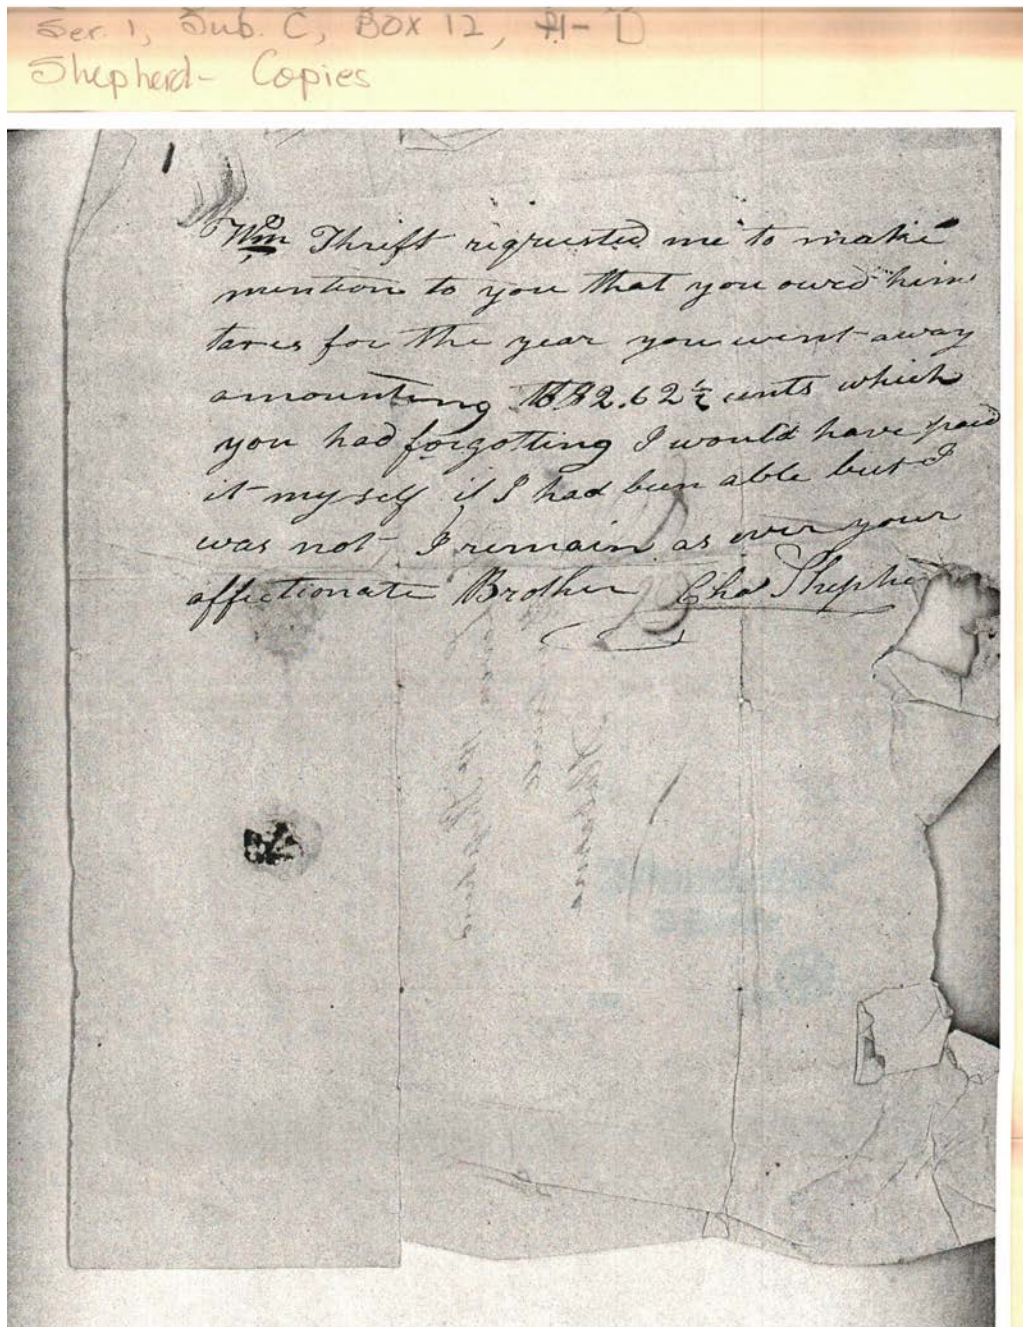 Ser. 1, Sub. C, Box 12, A-D
Shepherd- Copies
Wm Thrift requested me to make
mention to you that you owed him
taxes for the year you went away
amounting 2.62½ cents which
you had forgotting I would have paid
it myself if I had been able but I
was not I remain as ever your
affectionate Brother Chas Shephe